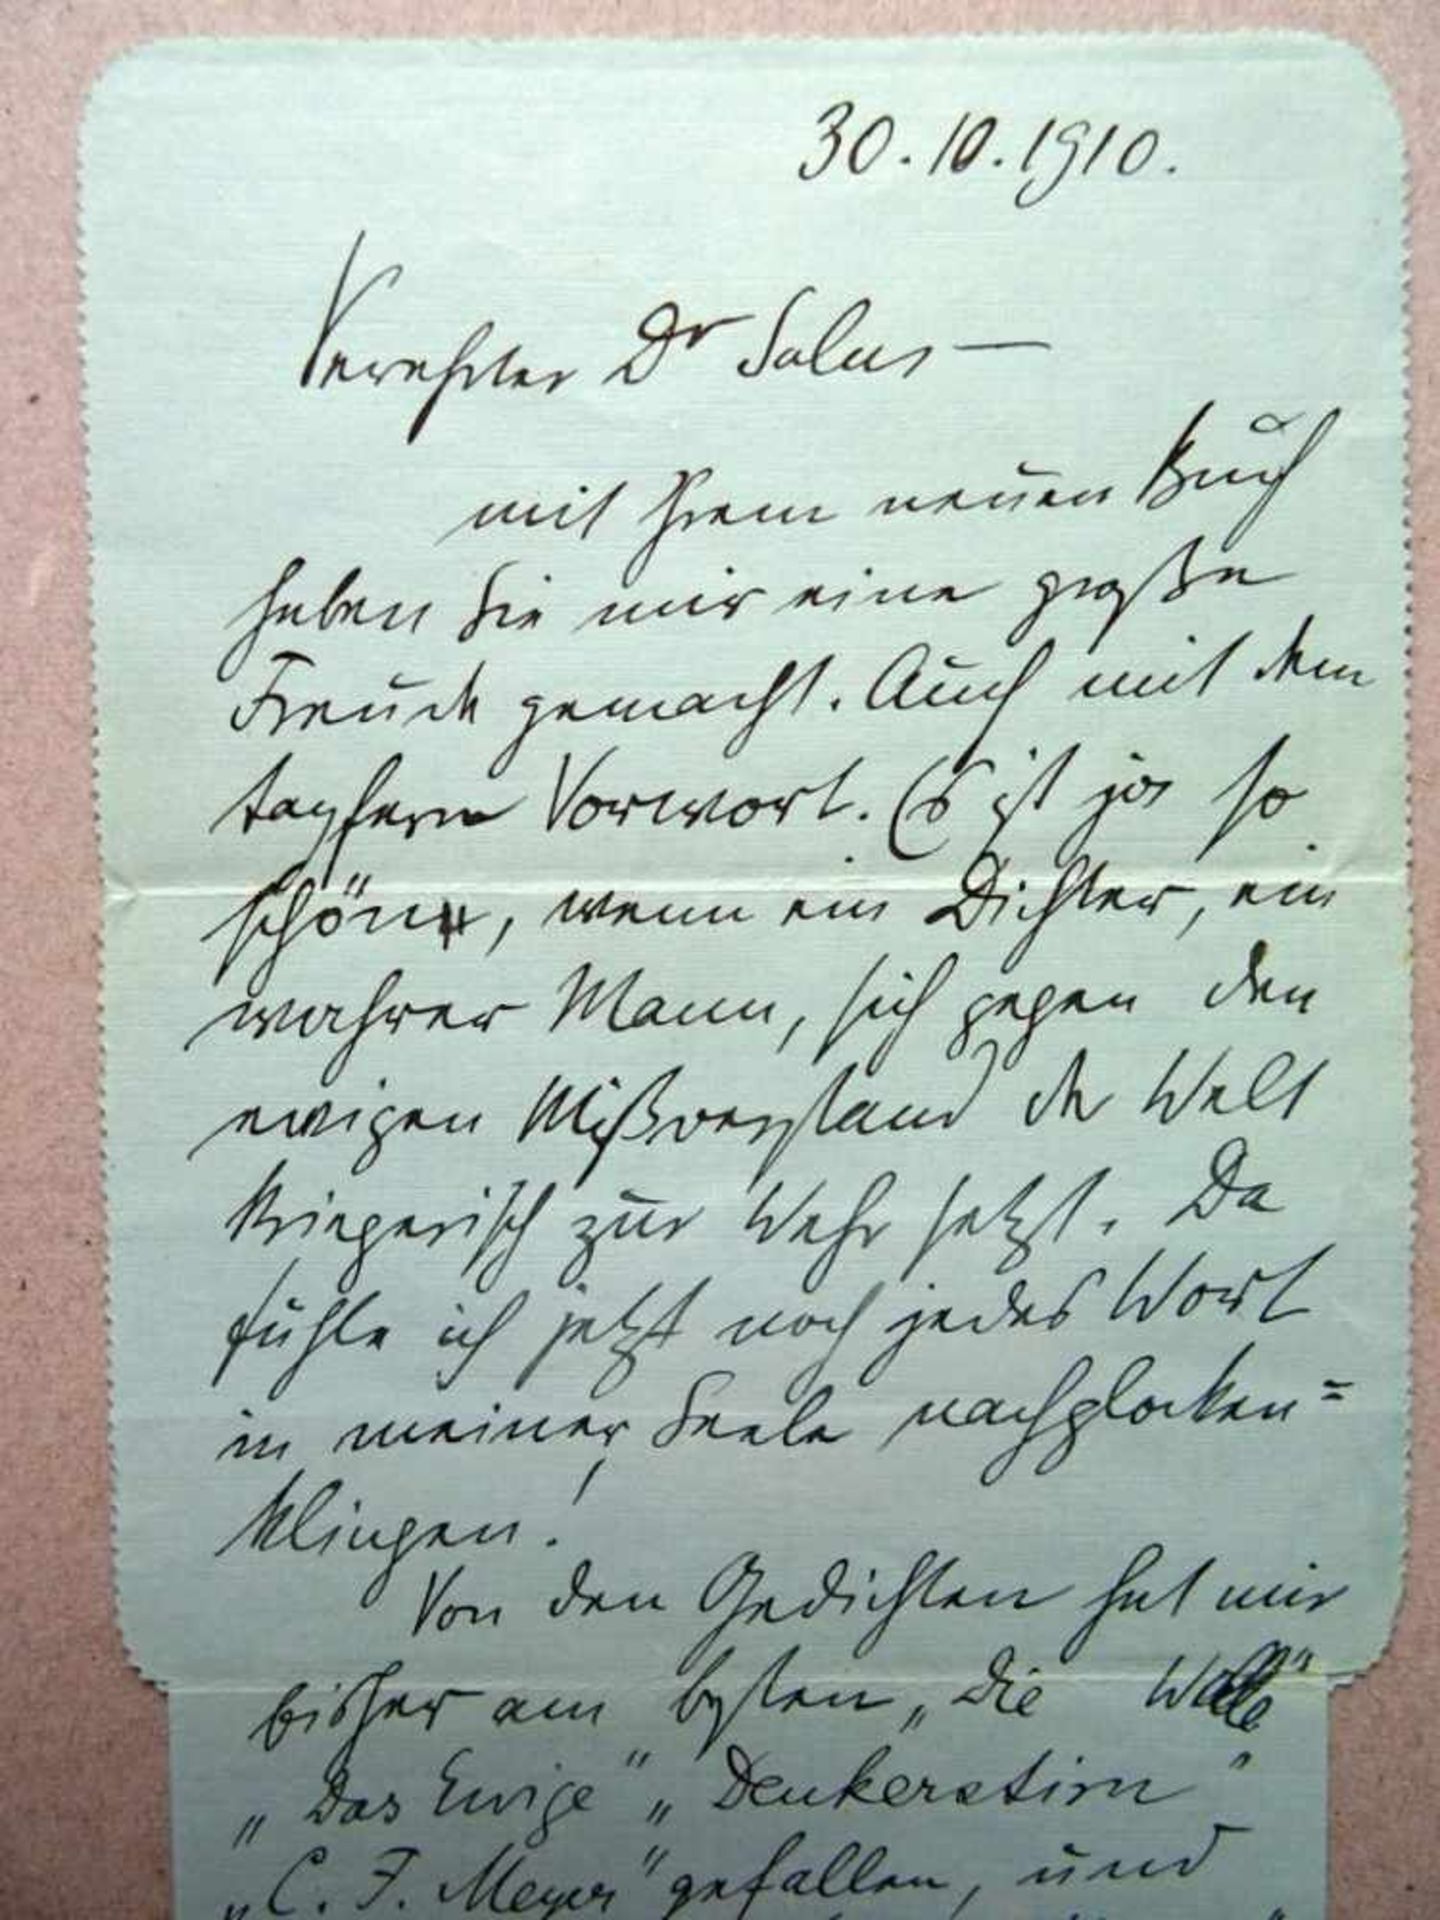 30.10.1910.
Verehrter Dr Salus —
mit Ihrem neuen Buch
haben Sie mir eine große
Freude gemacht. Auch mit dem
tapfern Vorwort. Es ist ja so
schön, wenn ein Dichter, ein
wahrer Mann, sich gegen den
ewigen Mißverstand der Welt
kriegerisch zur Wehr setzt. Da
fühle ich jetzt noch jedes Wort
in meiner Seele nachglocken=
klingen!
Von den Gedichten hat mir
bisher am besten „Die Welle“
„Das Ewige“ „Denkerstirn“
„C. F. Meyer“ gefallen, und